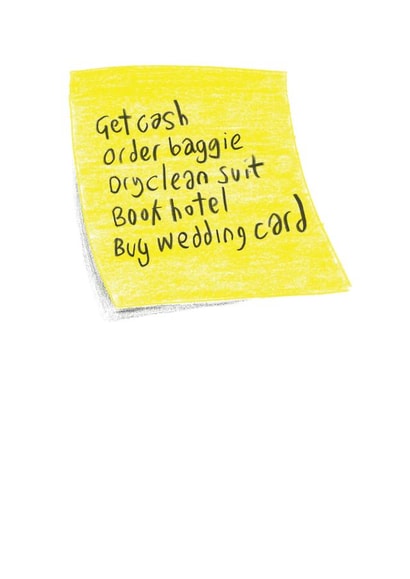 Get cash
Order baggie
Dryclean suit
Book hotel
Buy wedding card